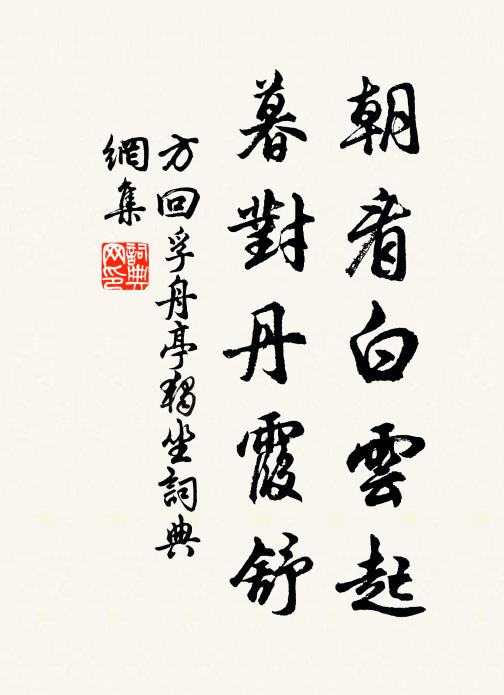 朝看白雲起
暮對丹霞舒
方回孚舟亭獨坐詞典
網集
詞典网印